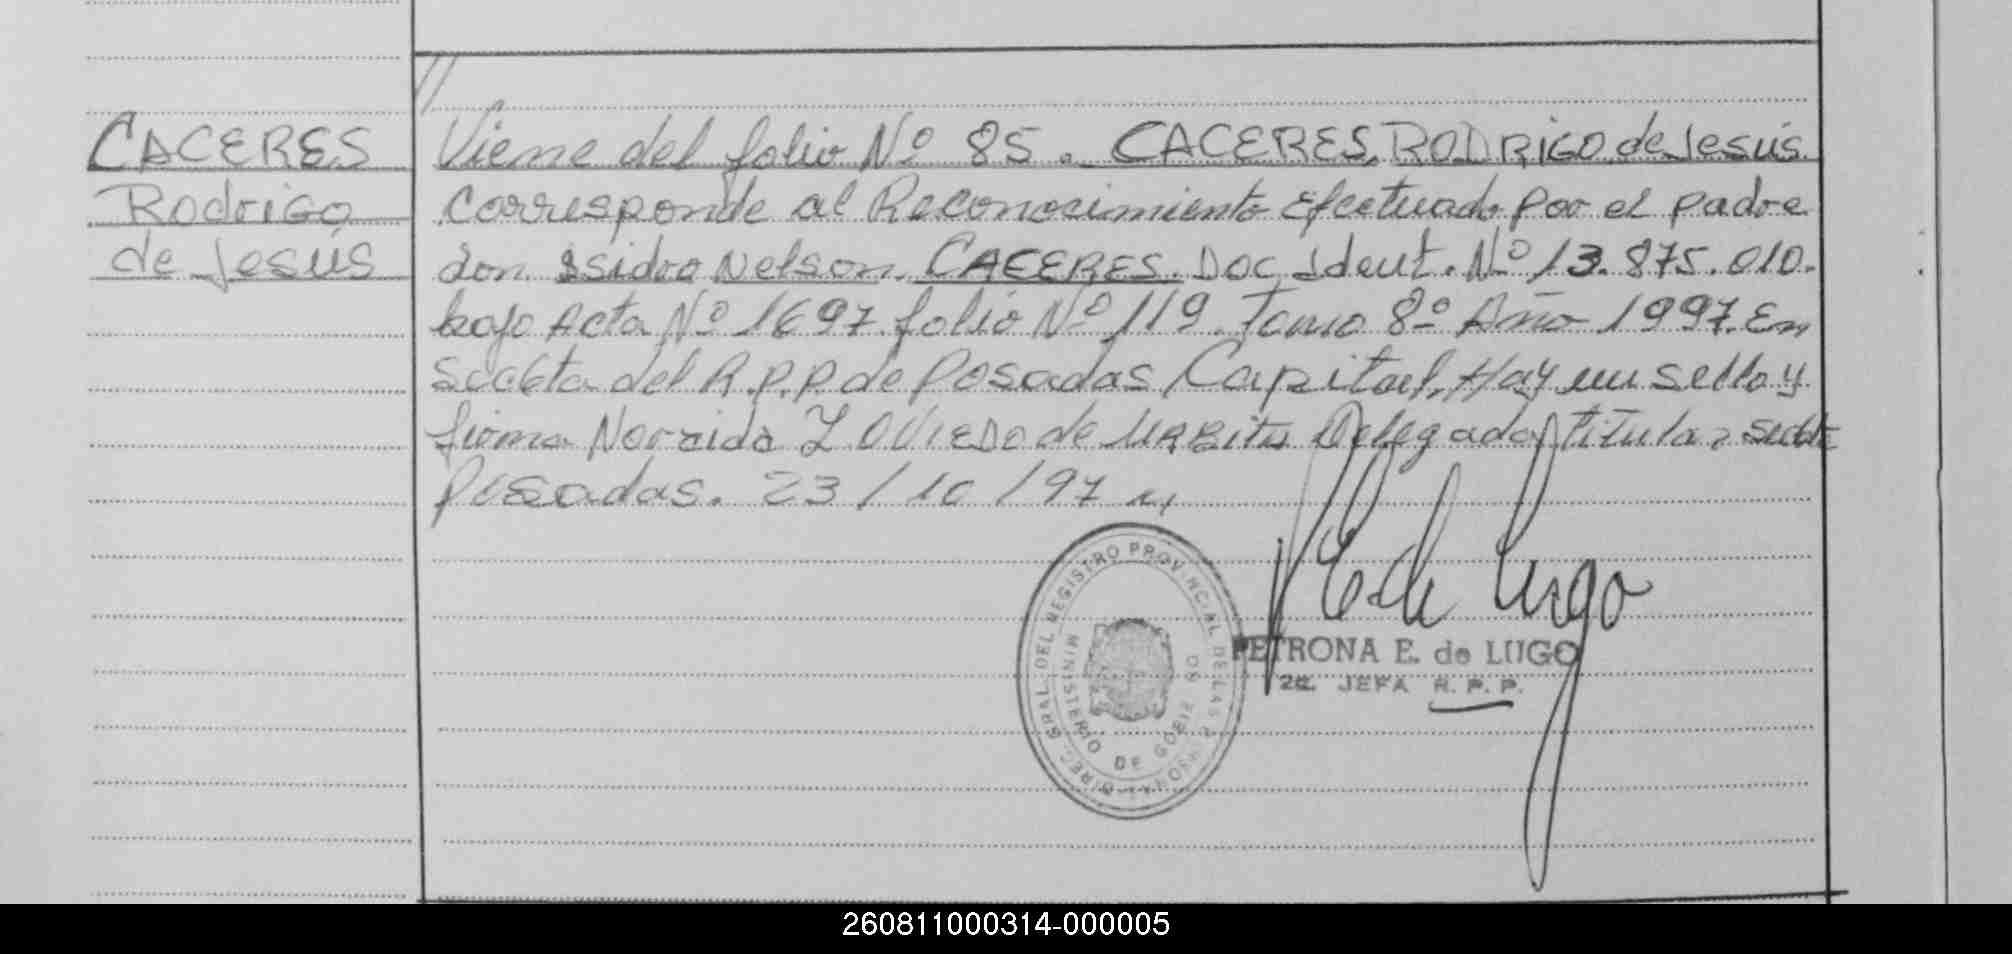 //
CACERES
Rodrigo
de Jesús
Viene del folio Nº 85. CACERES, RODRIGO de Jesús.
corresponde al Reconocimiento Efectuado por el padre
don Isidro Nelson CACERES. Doc Ident. Nº 13.875.010.
bajo Acta Nº 1697 folio Nº 119. Tomo 8º Año 1997. En
Sccbta del R.P.P. de Posadas Capital. Hay un sello y
firma Z Oviedo de Delegado titular
Posadas. 23/10/97
DIREC. GRAL. DEL REGISTRO PROVINCIAL DE LAS
MINISTERIO DE
PETRONA E. de LUGO
2a. JEFA R. P. P.
260811000314-000005